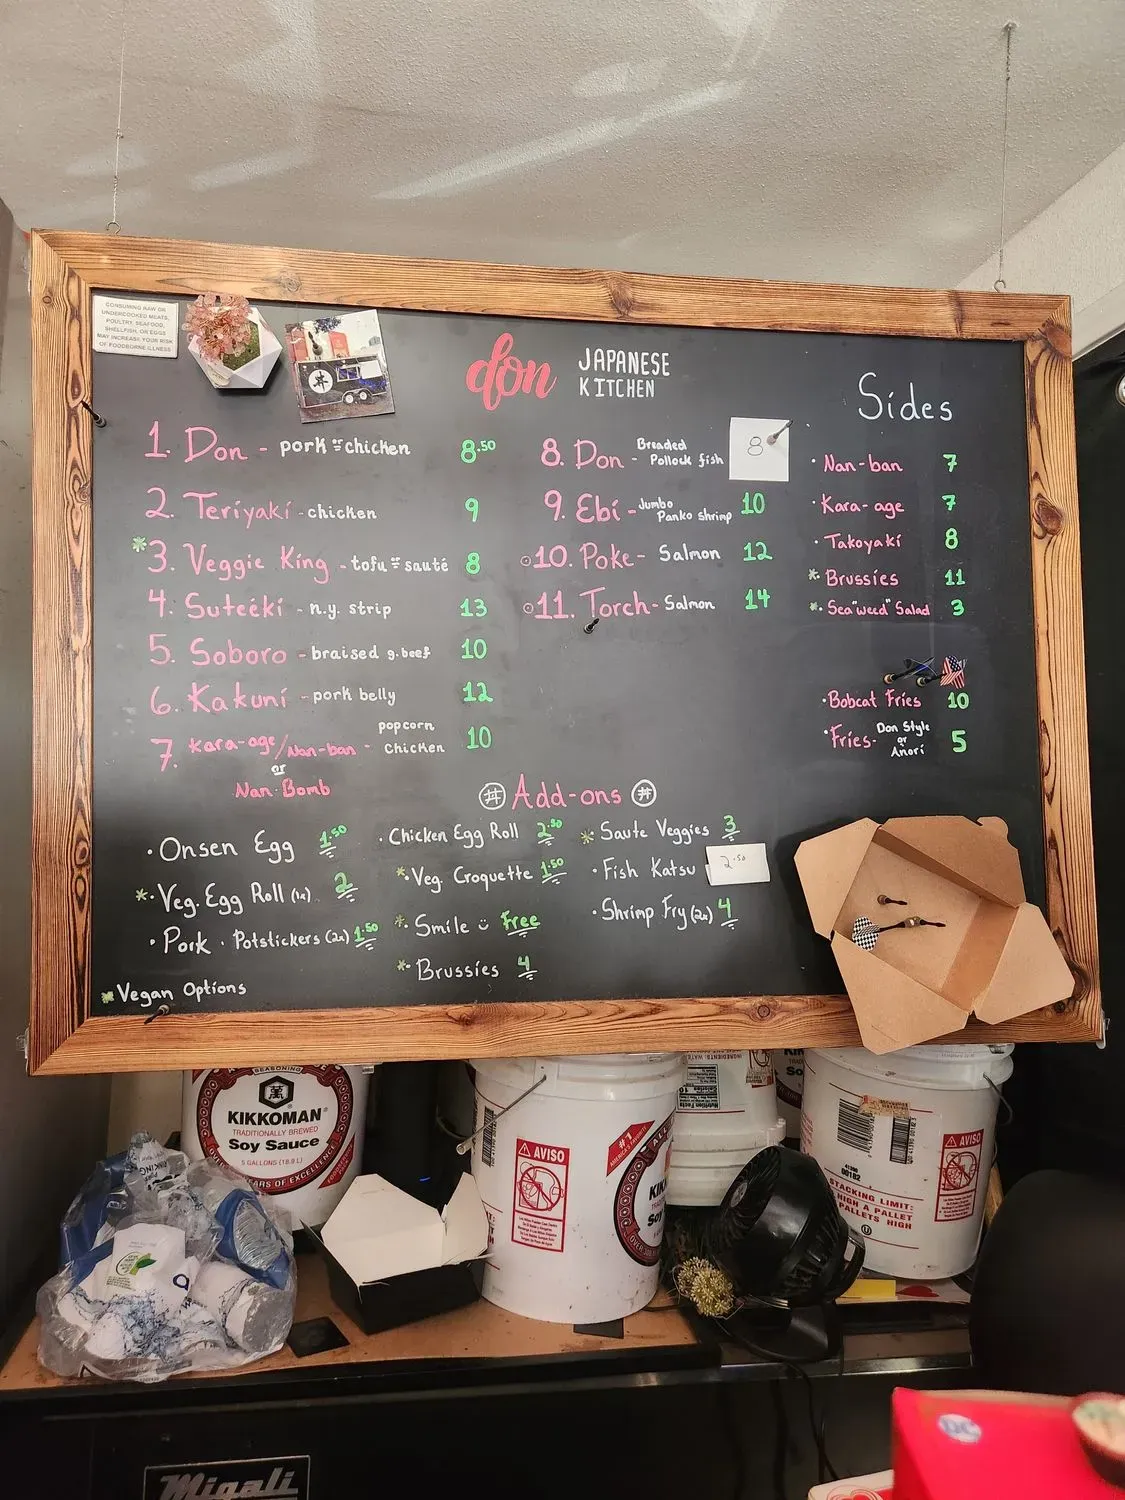 CONSUMING RAW OR
UNDERCOOKED MEATS,
POULTRY, SEAFOOD,
SHELLFISH, OR EGGS
MAY INCREASE YOUR RISK
OF FOODBORNE ILLNESS
don JAPANESE
KITCHEN
1. Don - pork or chicken 8.50
2. Teriyaki - chicken 9
*3. Veggie King - tofu or sauté 8
4. Suteeki - n.y. strip 13
5. Soboro - braised g.beef 10
6. Kakuni - pork belly 12
7. Kara-age/Nan-ban - popcorn chicken 10
or
Nan-Bomb
8. Don - Breaded Pollock fish 8
9. Ebi - Jumbo Panko shrimp 10
10. Poke - Salmon 12
11. Torch - Salmon 14
Sides
· Nan-ban 7
· Kara-age 7
· Takoyaki 8
* Brussies 11
* Sea"weed" Salad 3
· Bobcat Fries 10
· Fries - Don Style or Anori 5
# Add-ons #
· Onsen Egg 1.50
*· Veg. Egg Roll (1x) 2
· Pork · Potstickers (2x) 1.50
· Chicken Egg Roll 2.50
*· Veg. Croquette 1.50
*· Smile Free
*· Brussies 4
*· Saute Veggies 3
· Fish Katsu 2.50
· Shrimp Fry (2x) 4
* Vegan Options
SEASONING
KIKKOMAN
TRADITIONALLY BREWED
Soy Sauce
5 GALLONS (18.9 L)
YEARS OF EXCELLENCE
AVISO
AVISO
Nutrition Facts
41390
00182
STACKING LIMIT:
HIGH A PALLET
PALLETS HIGH
Migali